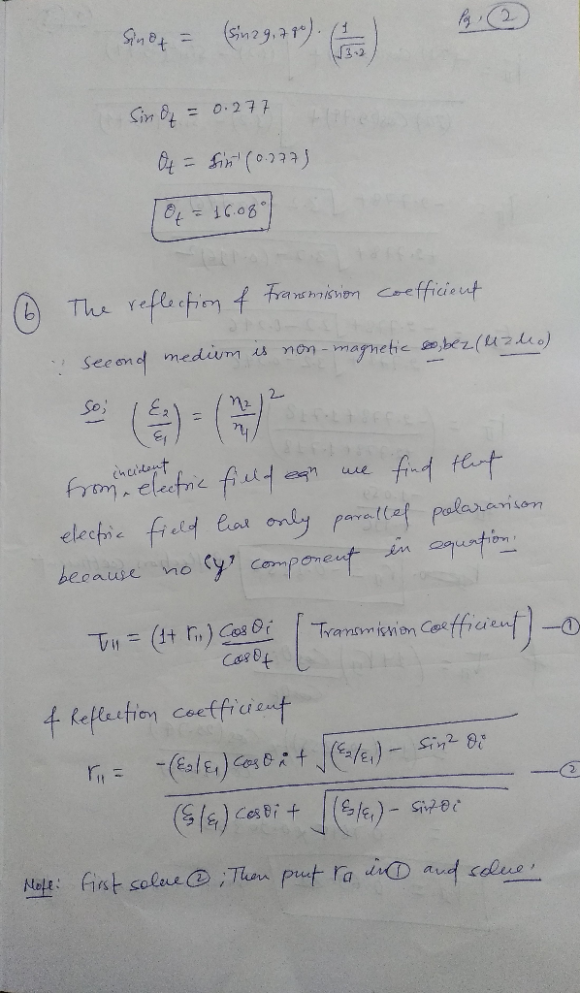 Pg. 2
Sinθt = (Sin29.79°) · (1/√3.2)
Sin θt = 0.277
θt = Sin⁻¹(0.277)
θt = 16.08°
(b) The reflection & Transmission coefficient
∵ second medium is non-magnetic so, bez (μ=μ0)
So; (ε2/ε1) = (η2/η1)²
incident
From electric field eqn we find that
electric field has only parallel polararison
because no 'y' component in equation.
τ11 = (1+r11) Cosθi/Cosθt [Transmission Coefficient] —①
& Reflection coefficient
r11 = -(ε2/ε1) Cosθi + √(ε2/ε1) - Sin² θi / (ε2/ε1) Cosθi + √(ε2/ε1) - Sin²θi —②
Note: First solve ②; Then put r11 in ① and solve.